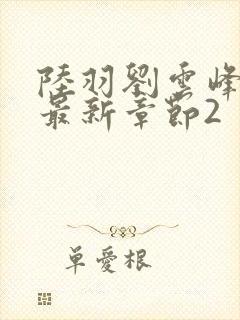 陸羽劉雲峰
最新章節2
單愛根